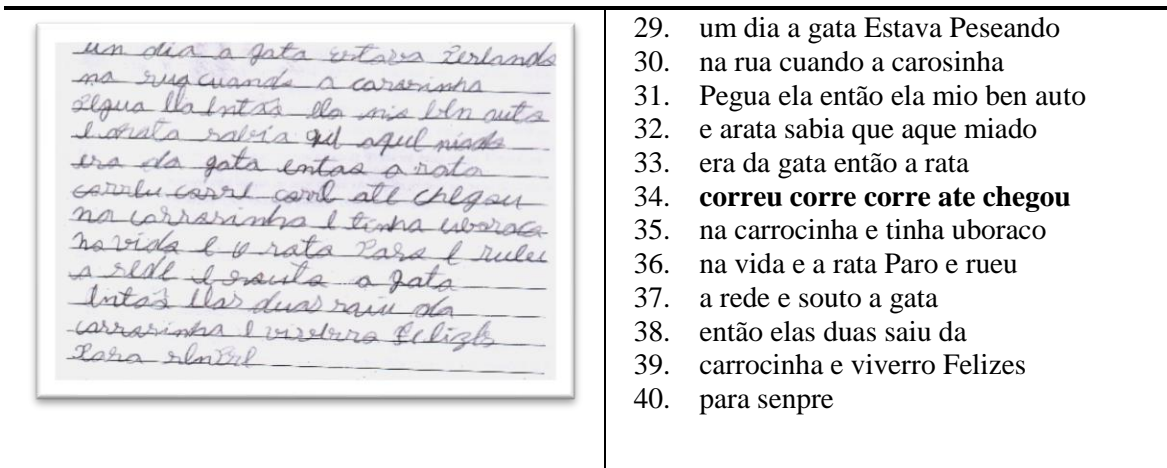 un dia a gata estava Peseando
na rua cuando a carosinha
Pegua ela entas ela mio ben auto
e arata sabia que aquel miado
era da gata entao a rata
correu corre corre ate chegou
na carrosinha e tinha uboraco
na vida e a rata Paro e rueu
a rede e souto a gata
entas elas duas saiu da
carrosinha e viverro Felizes
Para senpre
29. um dia a gata Estava Peseando
30. na rua cuando a carosinha
31. Pegua ela então ela mio ben auto
32. e arata sabia que aque miado
33. era da gata então a rata
34. correu corre corre ate chegou
35. na carrocinha e tinha uboraco
36. na vida e a rata Paro e rueu
37. a rede e souto a gata
38. então elas duas saiu da
39. carrocinha e viverro Felizes
40. para senpre